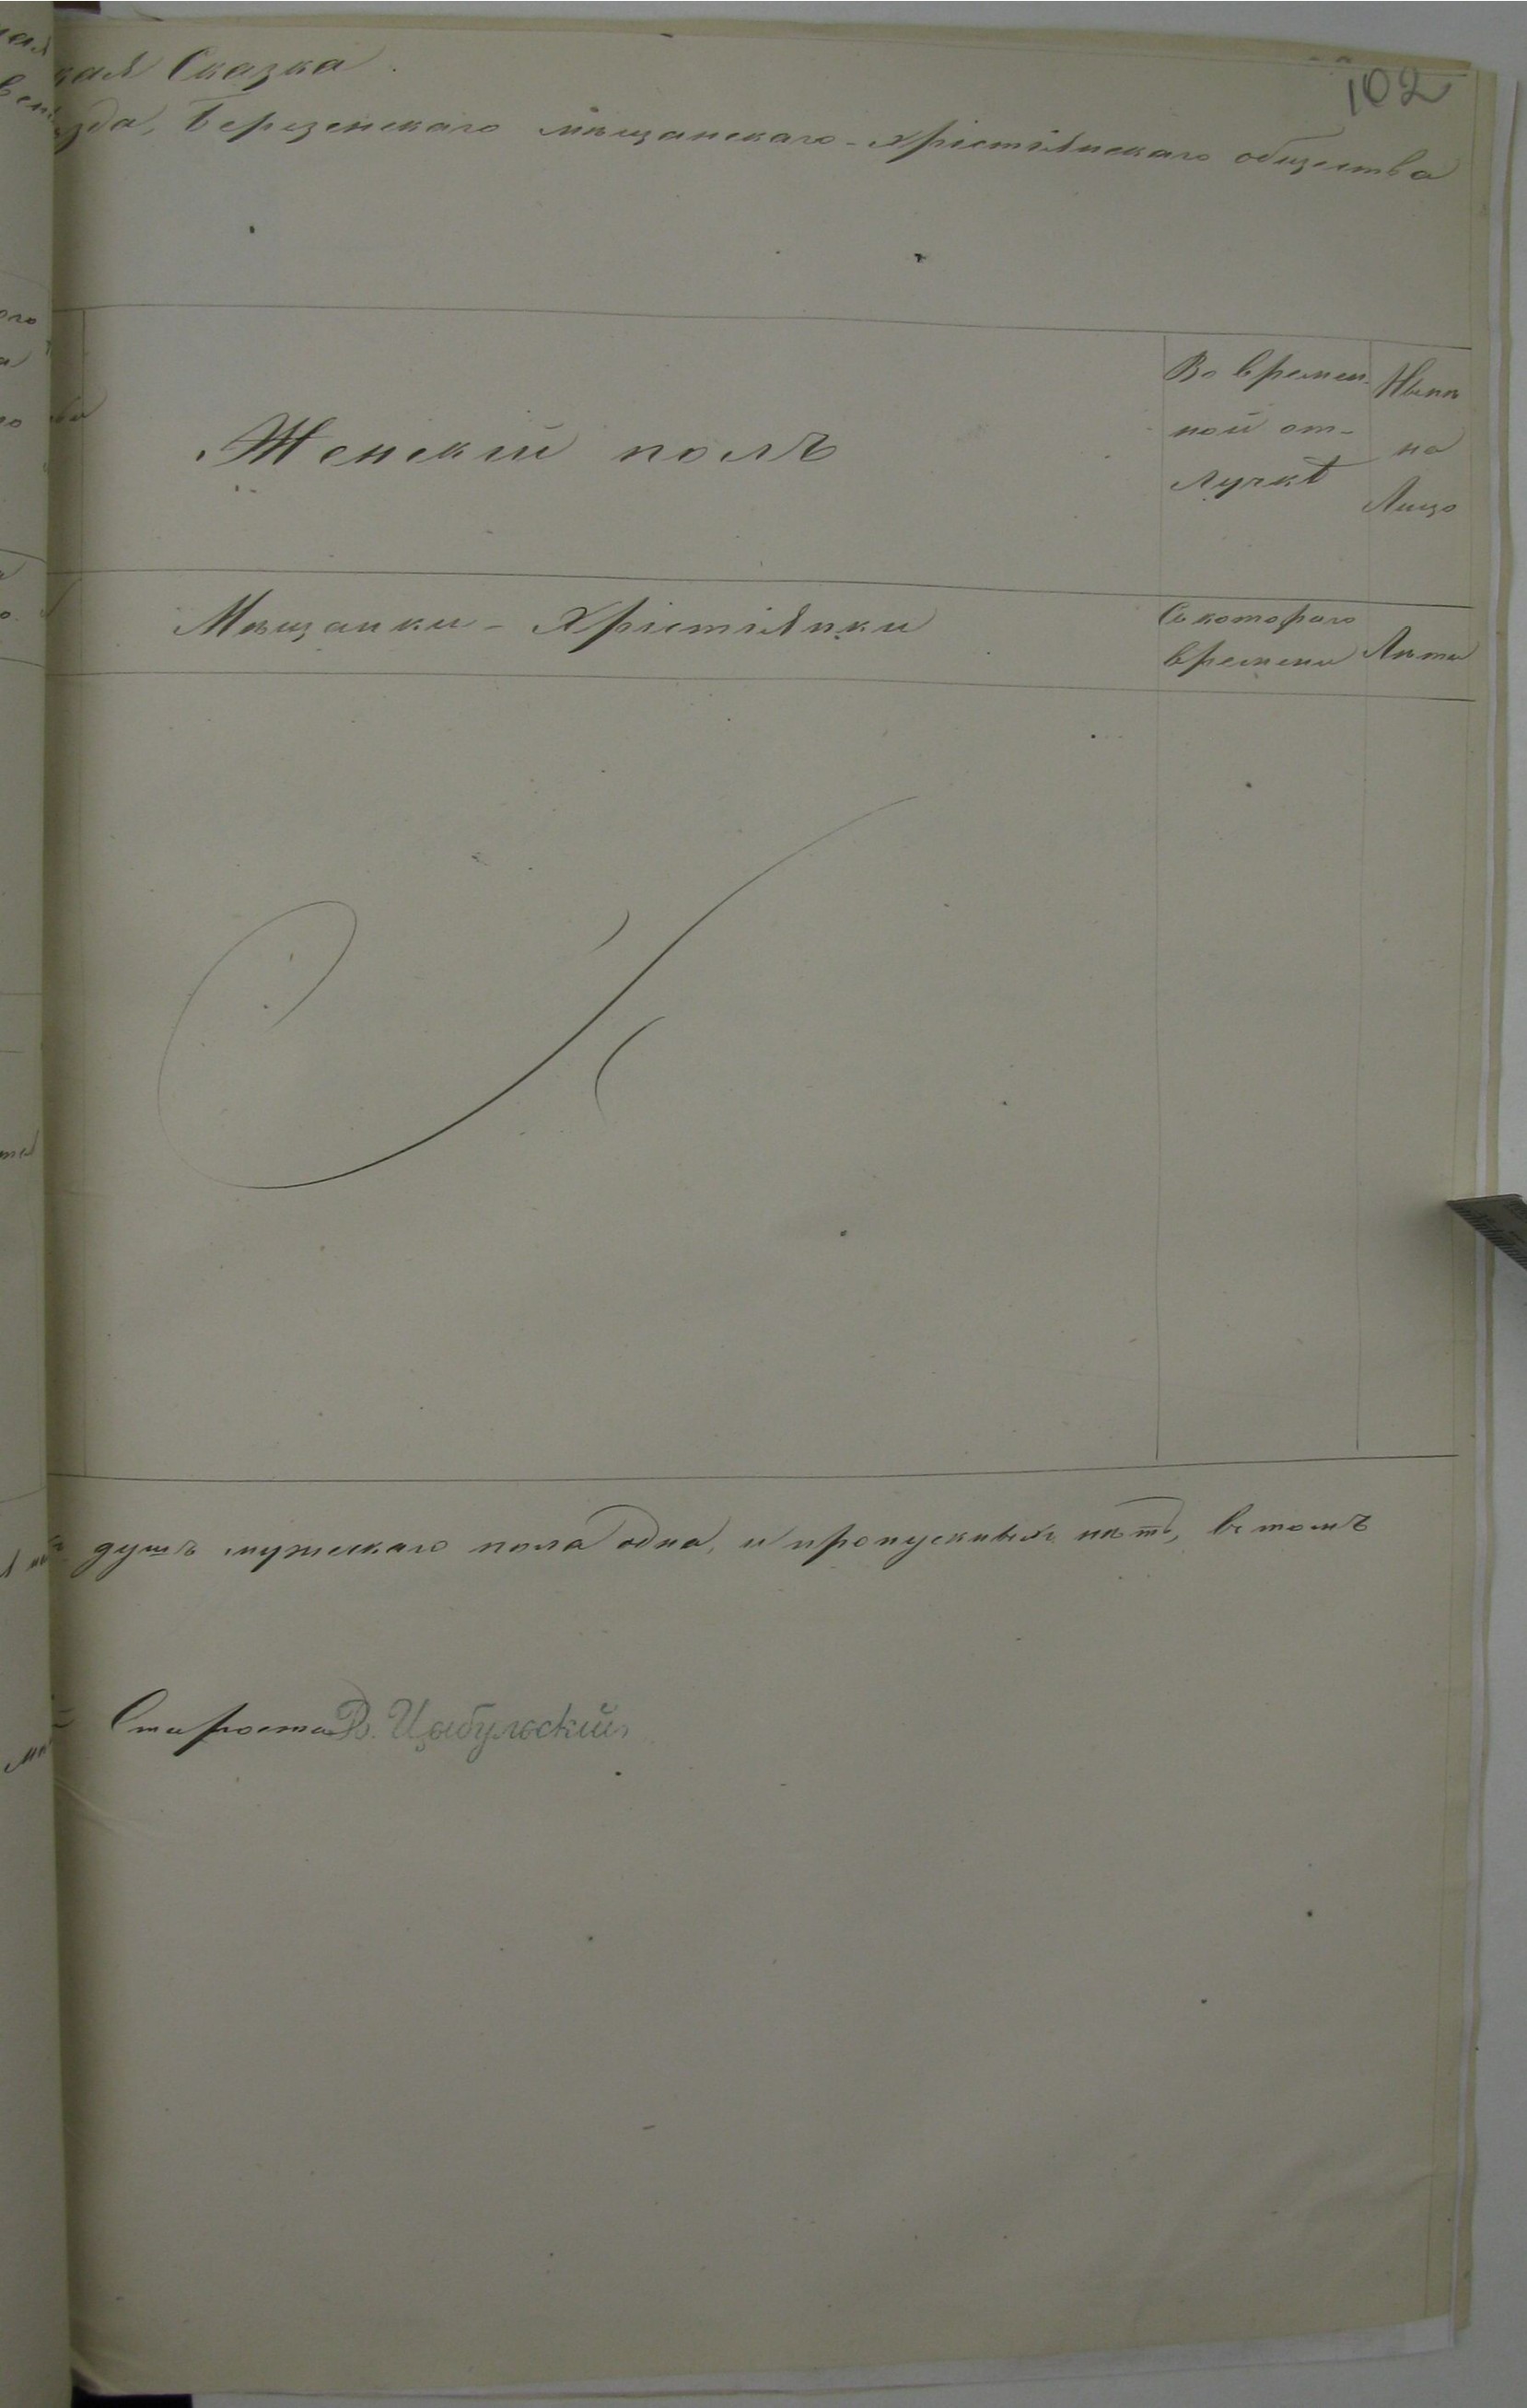 102
кая Сказка.
зда, Березенскаго мѣщанскаго-христіянскаго общества
Женскій полъ
Во времен-
ной от-
лучкѣ
Нынѣ
на
Лицо
Мѣщанки-Христіянки
Съ котораго
времени
Лѣта
душъ мужескаго пола одна, и пропускныхъ нѣтъ, въ томъ
Староста В. Цыбульскій